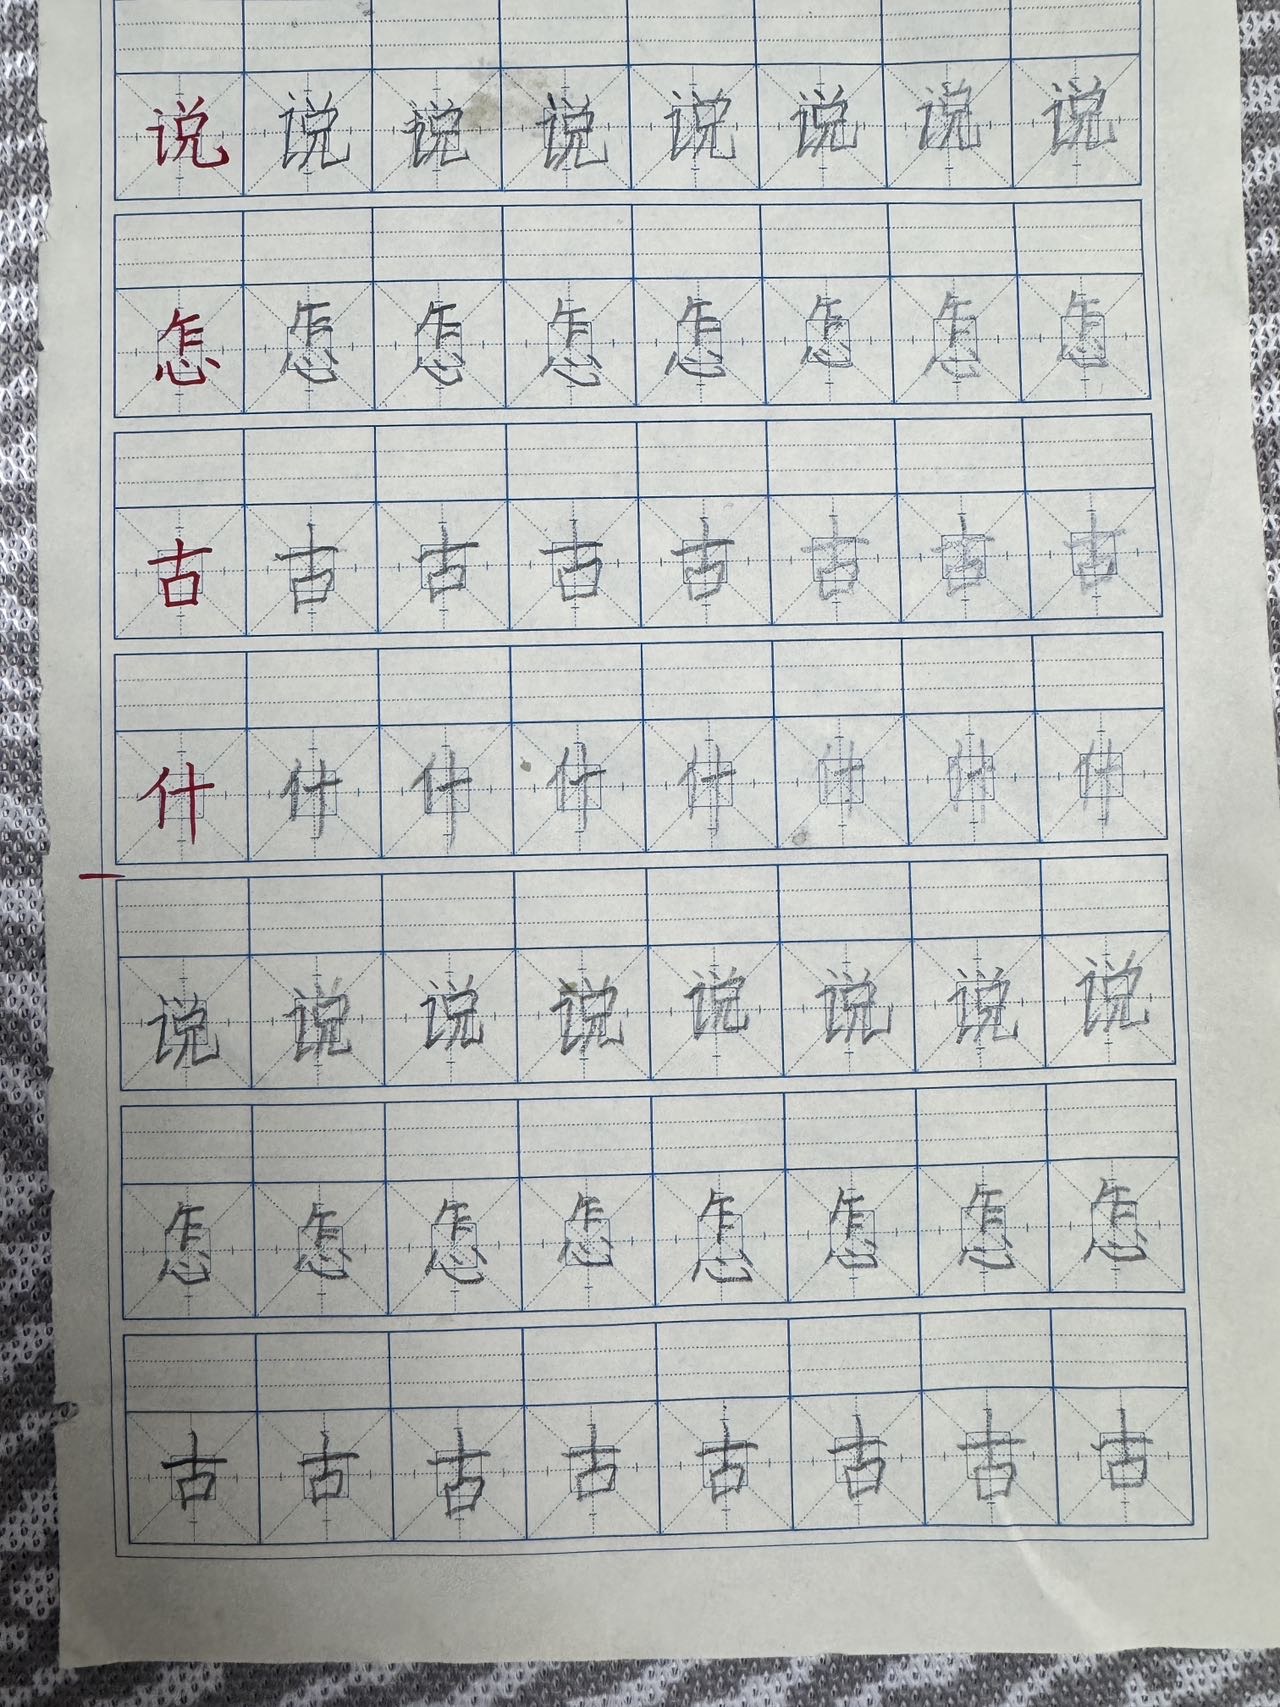 说说说说说说说说
怎怎怎怎怎怎怎怎
古古古古古古古古
什什什什什什什什
说说说说说说说说
怎怎怎怎怎怎怎怎
古古古古古古古古